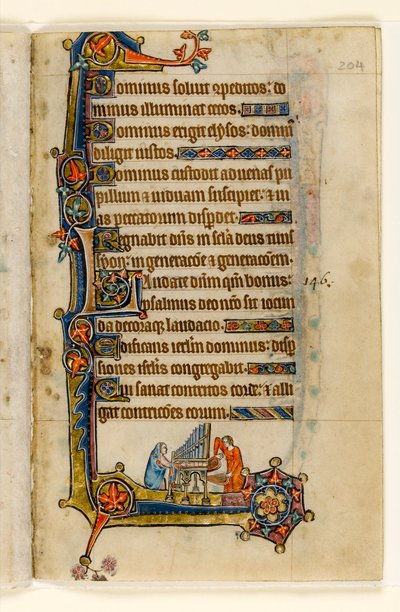 204
Dominus soluit cōpeditos: do
minus illuminat cecos.
Dominus erigit elysos: dominus
diligit iustos.
Dominus custodit aduenas pu
pillum & uiduam suscipiet: & ui
as peccatorum disperdet.
Regnabit dn̄s in secl̄a deus tuus
syon: in generac̄oē & generac̄oēm.
Laudate dn̄m qm̄ bonus:
146.
psalmus deo nr̄o sit iocun
da decoraq̨ laudacio.
Edificans ierl̄m dominus: disp
siones isrl̄is congregabit.
Qui sanat contritos corde: & alli
gat contric̄oēs eorum.